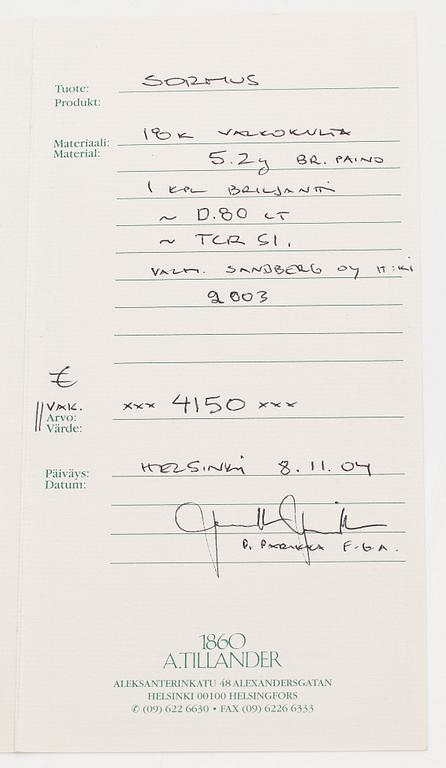 Tuote: SORMUS
Produkt:
Materiaali: 18K VALKOKULTA
Material: 5.2g BR. PAINO
1 KPL BRILJANTTI
~ 0.80 CT
~ TCR SI,
VALM. SANDBERG OY H:KI
2003
€
VAK. xxx 4150 xxx
Arvo:
Värde:
Päiväys: HELSINKI 8.11.04
Datum:
P. PARIKKA F.G.A.
1860
A.TILLANDER
ALEKSANTERINKATU 48 ALEXANDERSGATAN
HELSINKI 00100 HELSINGFORS
✆ (09) 622 6630 • FAX (09) 6226 6333